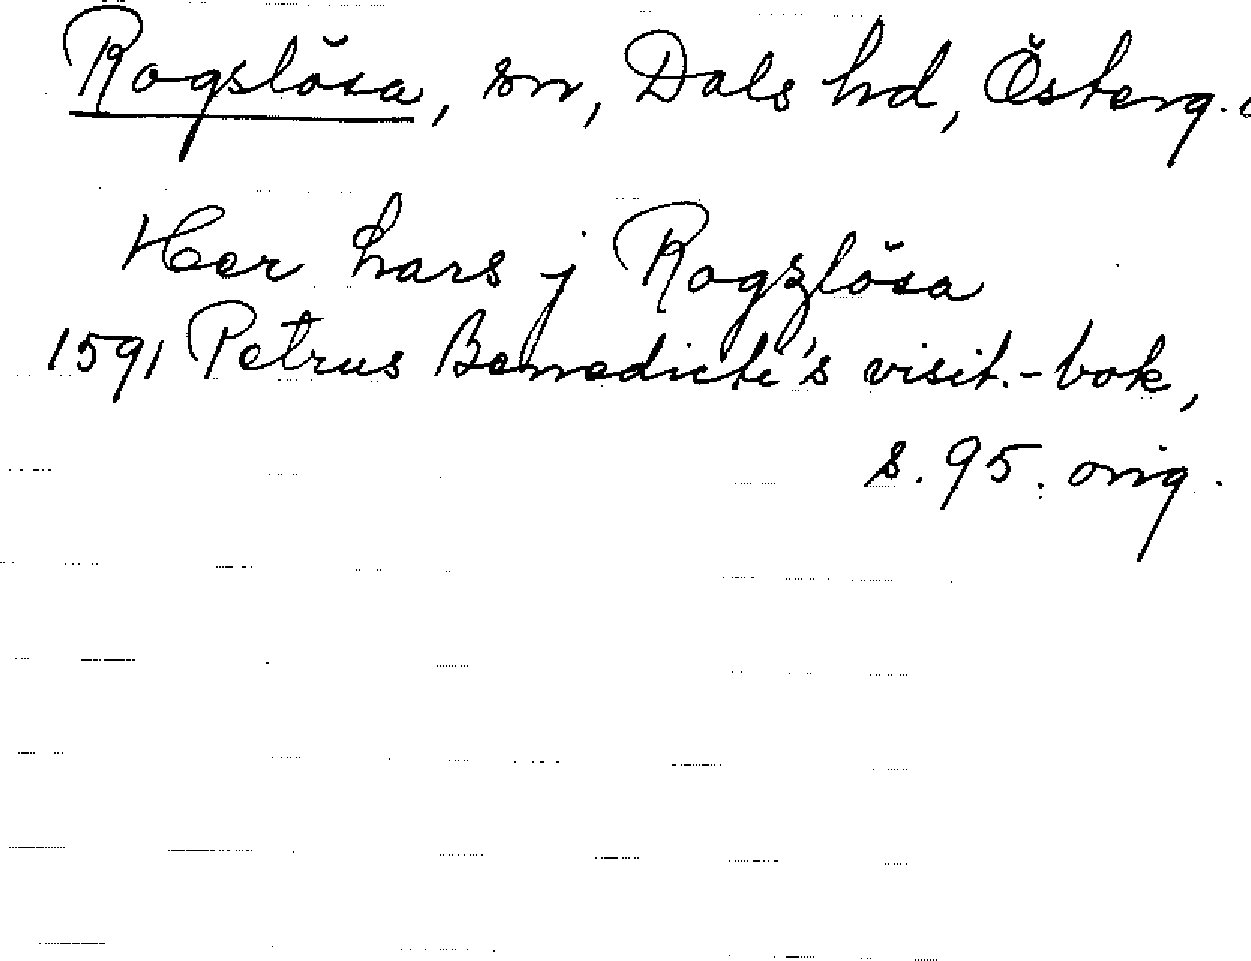 Rogslösa, sn, Dals hd, Österg.
Her Lars j Rogzlösa
1591 Petrus Benedicti's visit.-bok,
s. 95. orig.